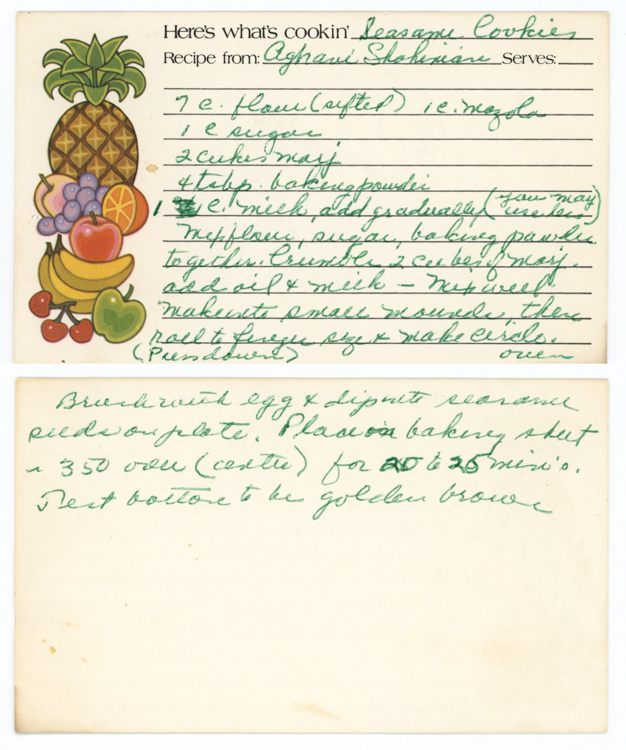 Here's what's cookin' Seasame Cookies
Recipe from: Aghavni Shahinian Serves:
7 c. flour (sifted) 1 c. mazola
1 c sugar
2 cubes marj
4 tsbp. baking powder
1 c. milk, add gradually (you may use less)
Mix flour, sugar, baking powder
together. Crumble 2 cubes of marj.
add oil & milk – Mix well
Make into small mounds, then
roll to finger size & make circle.
(Press down) oven
Brush with egg & dip into seasame
seeds on plate. Place on baking sheet
in 350 oven (center) for 20 to 25 min's.
Test bottom to be golden brown